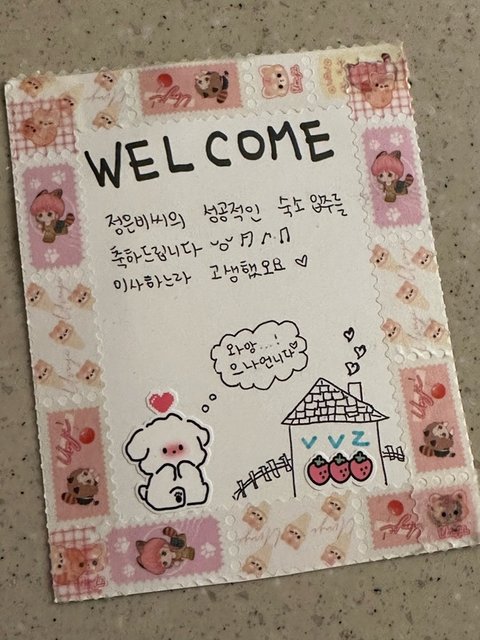 WELCOME
정은비씨의 성공적인 숙소 입주를
축하드립니다
이사하느라 고생했오요 ♡
와앙...!
으나언니다
VVZ